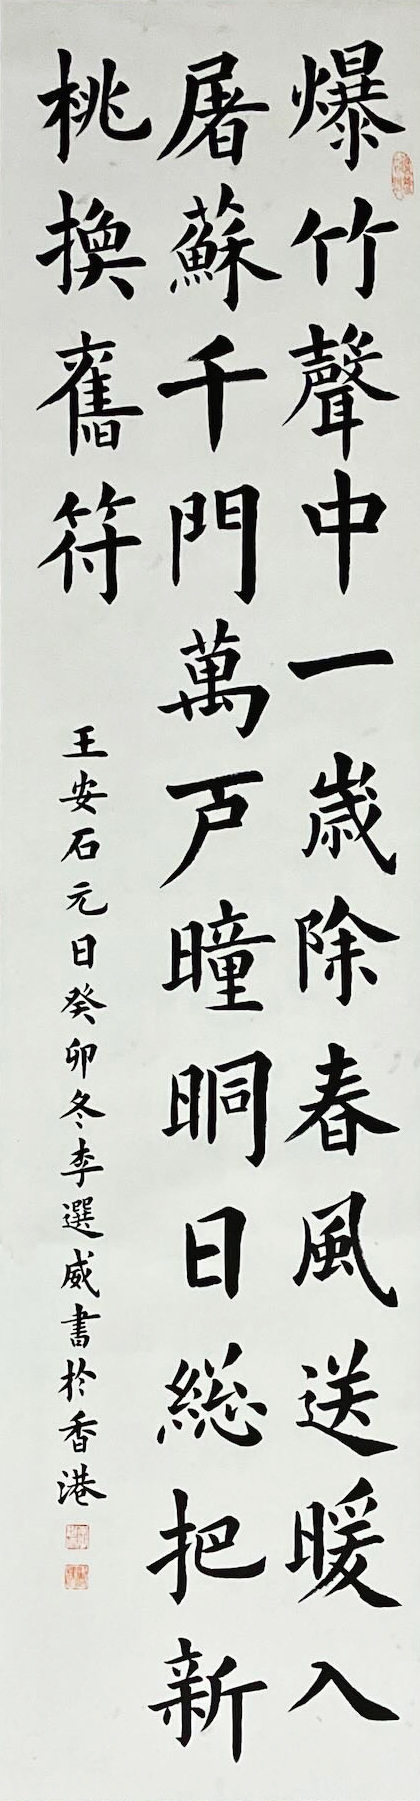 爆竹聲中一歲除春風送暖入
屠蘇千門萬戶曈晍日總把新
桃換舊符
王安石元日癸卯冬李選威書於香港